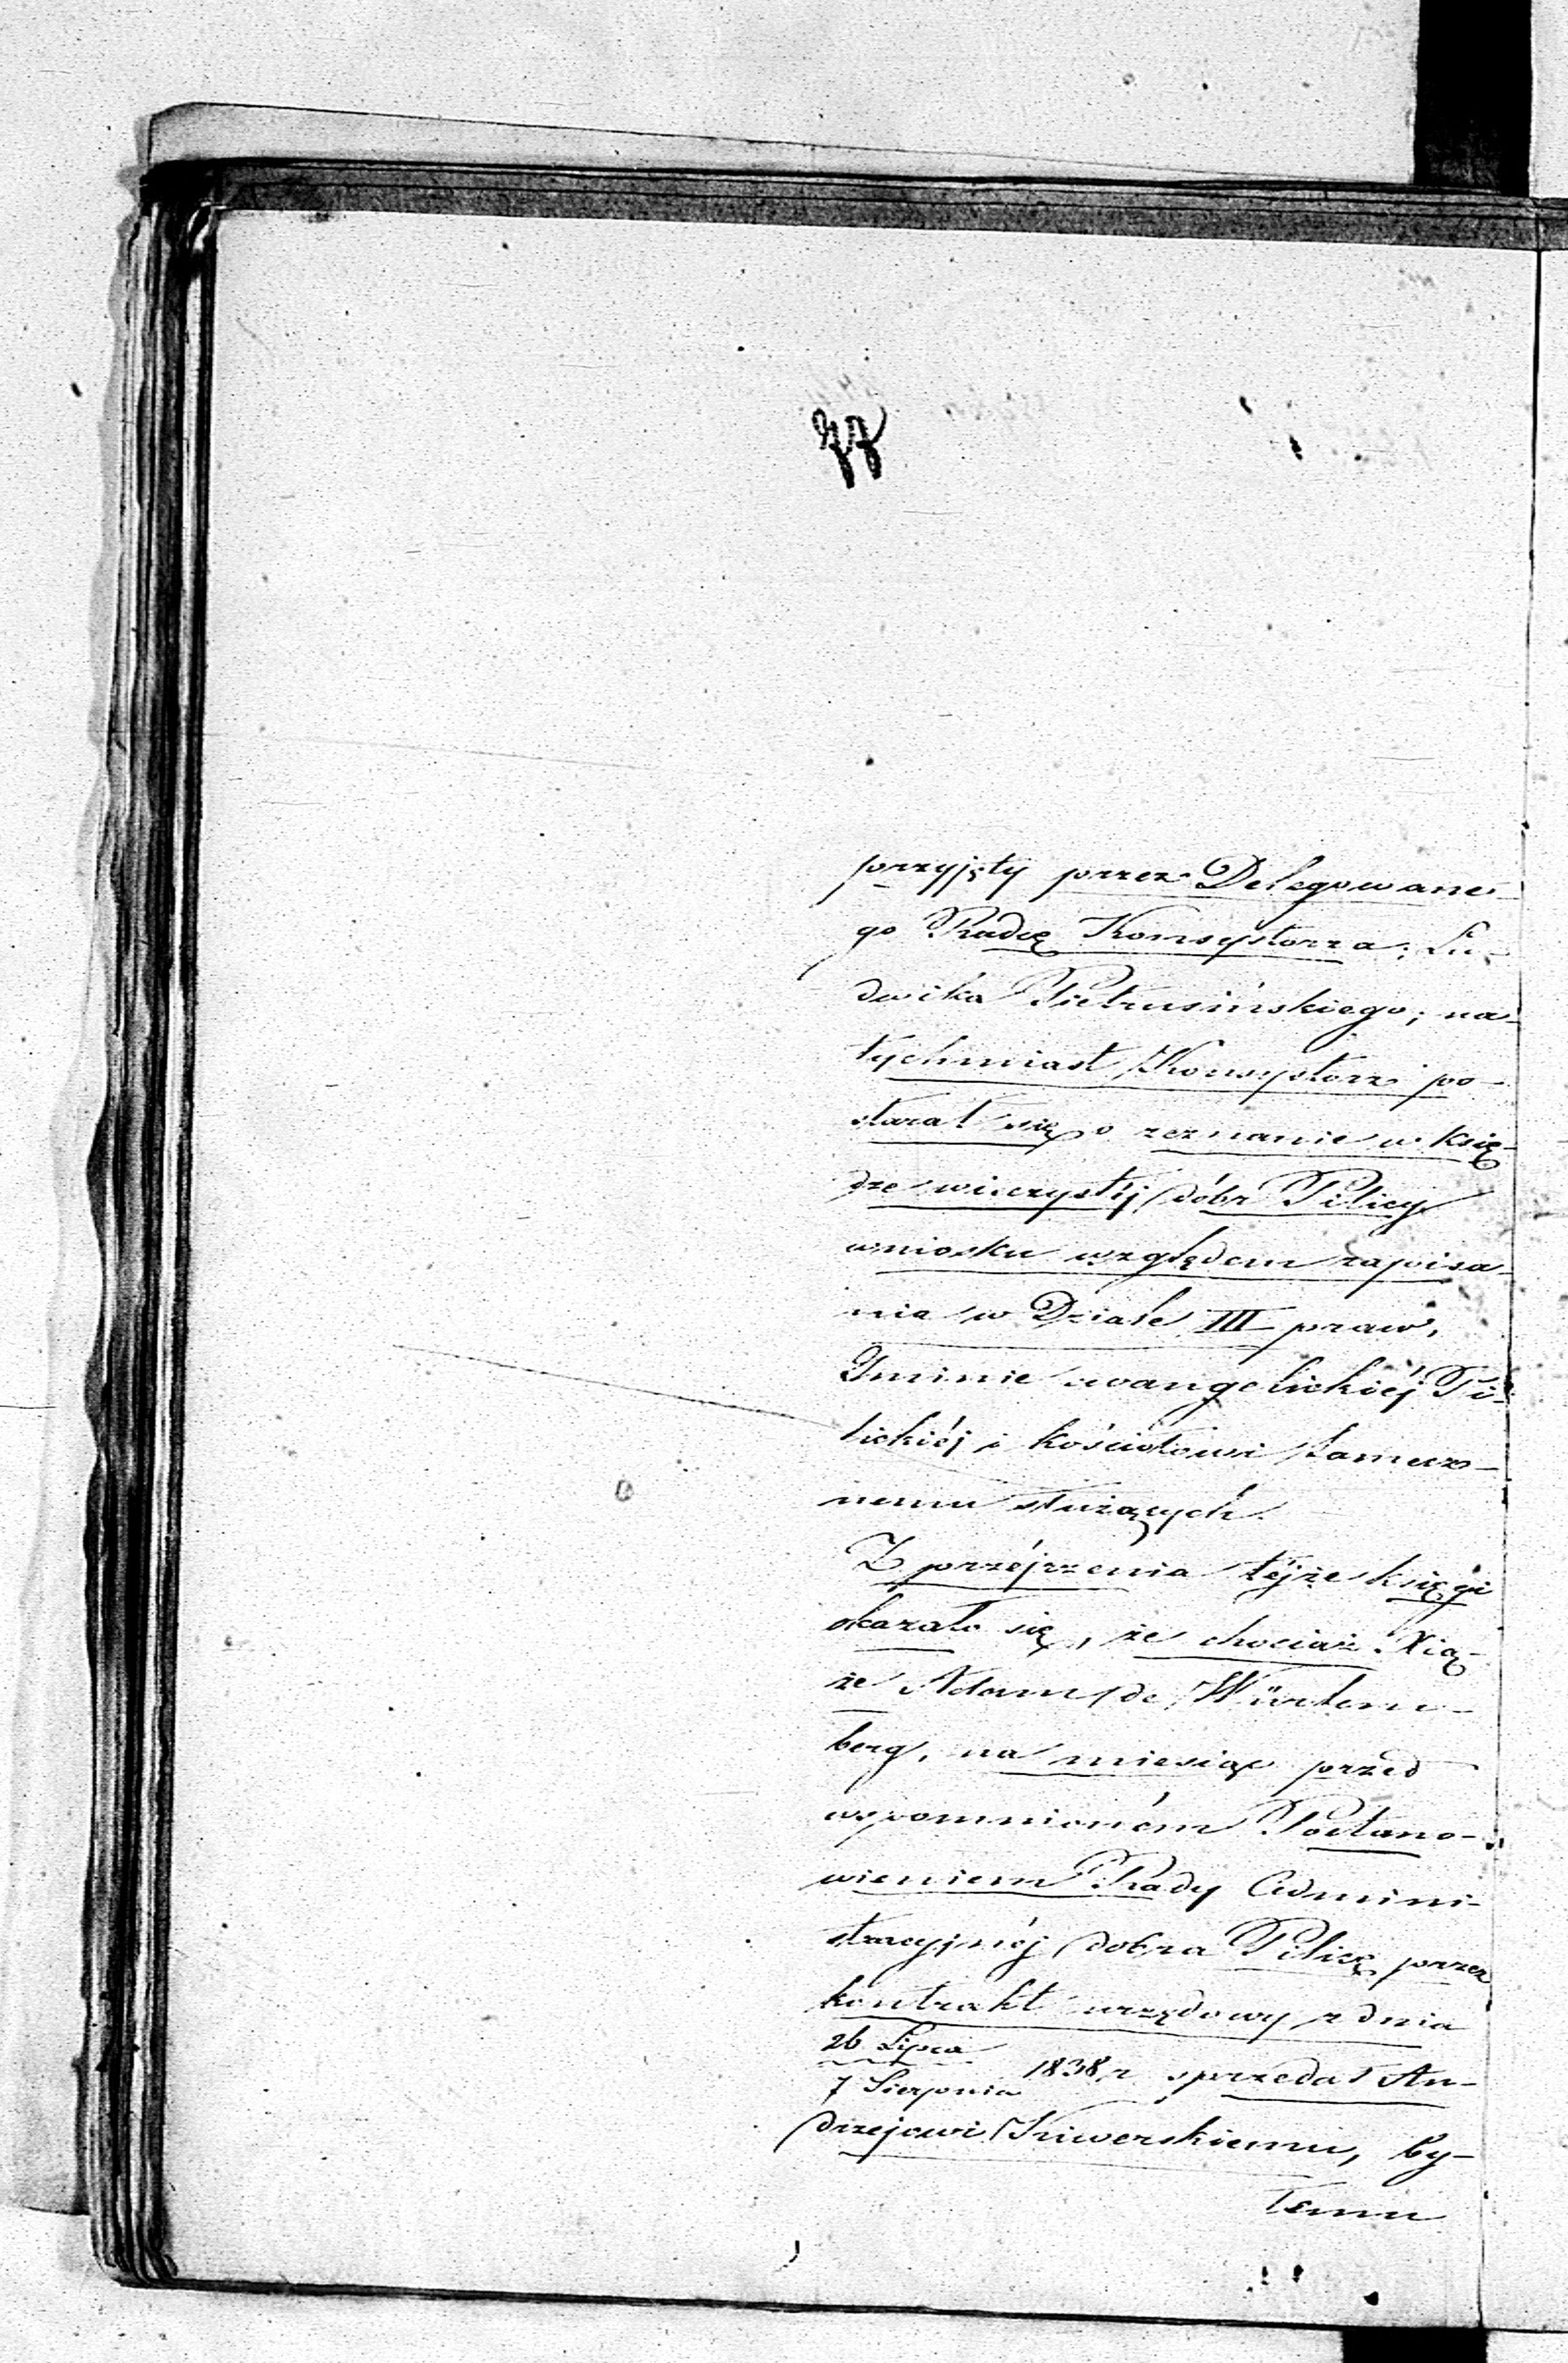 77
przyjęty przez Delegowane-
go Radcę Konsystorza, Lu-
dwika Pietrusińskiego; na-
tychmiast Konsystorz po-
starał się o zeznanie w księ-
dze wieczystéj dóbr Pilicy
wniosku względem zapisa-
nia w Dziale III praw,
Gminie ewangelickiéj Pi-
lickiéj i kościołowi tamecz-
nemu służących.
Z przéjrzenia téjże księgi
okazało się, że chociaż Xią-
że Adam de Würtem-
berg, na miesiąc przed
wspomnioném Postano-
wieniem Rady Admini-
stracyjnéj dobra Pilicę przez
kontrakt urzędowy z dnia
26 Lipca
7 Sierpnia 1838 r. sprzedał An-
drzejowi Kiwerskiemu, by-
łemu